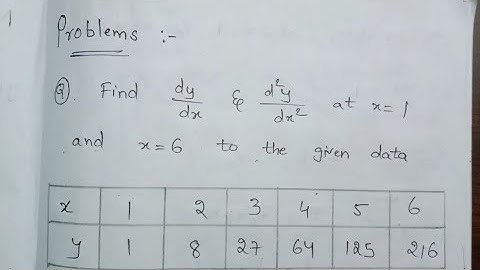 Problems :-
Q. Find dy/dx & d²y/dx² at x=1
and x=6 to the given data
x 1 2 3 4 5 6
y 1 8 27 64 125 216